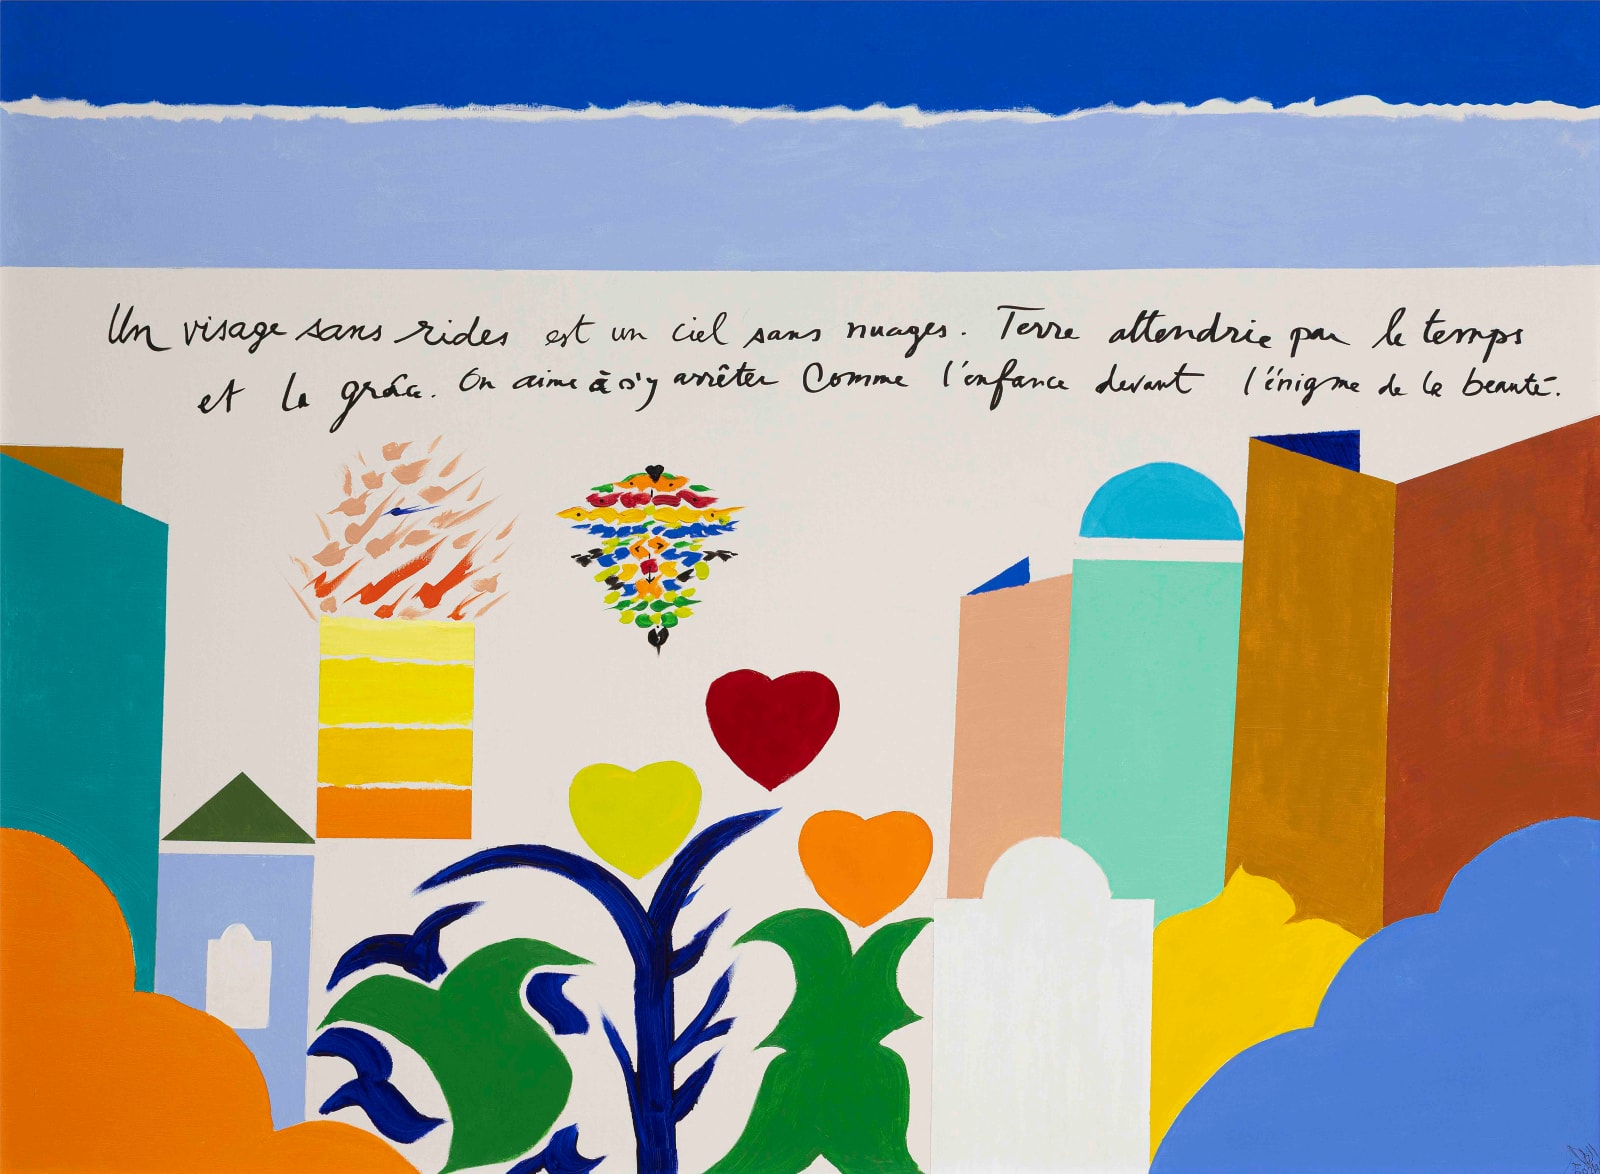 Un visage sans rides est un ciel sans nuages. Terre attendrie par le temps
et la grâce. On aime à s'y arrêter comme l'enfance devant l'énigme de la beauté.